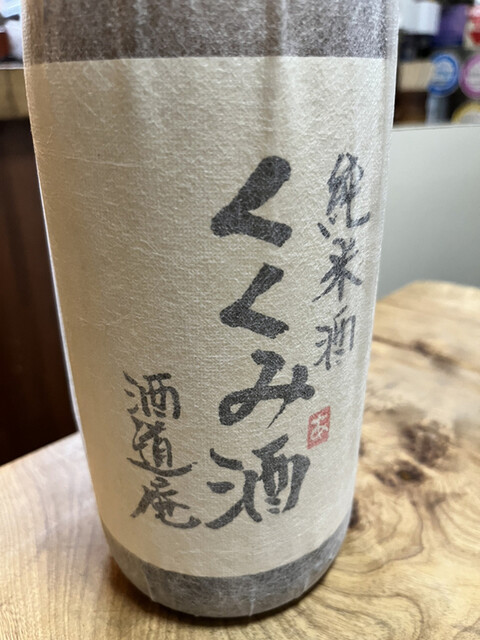 純米酒
くくみ酒
酒道庵